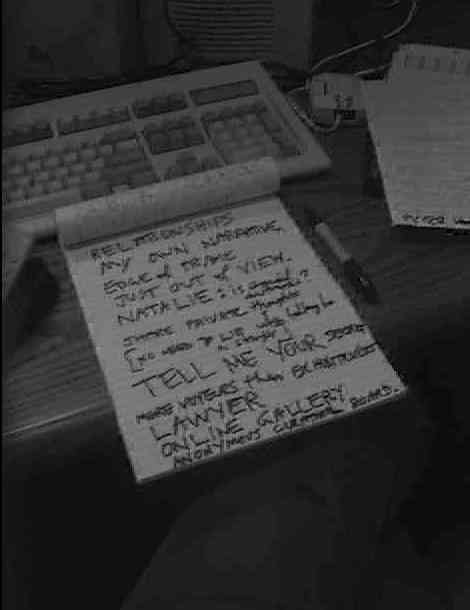 RELATIONSHIPS
MY OWN NARRATIVE,
EDGE of FRAME
JUST OUT of VIEW.
NATALIE: is
SHARE PRIVATE thoughts
[NO NEED TO LIE while talking to
a stranger]
TELL ME YOUR SECRETS
MORE than EXHIBITIONIST
LAWYER
ONLINE GALLERY
ANONYMOUS BOARD.